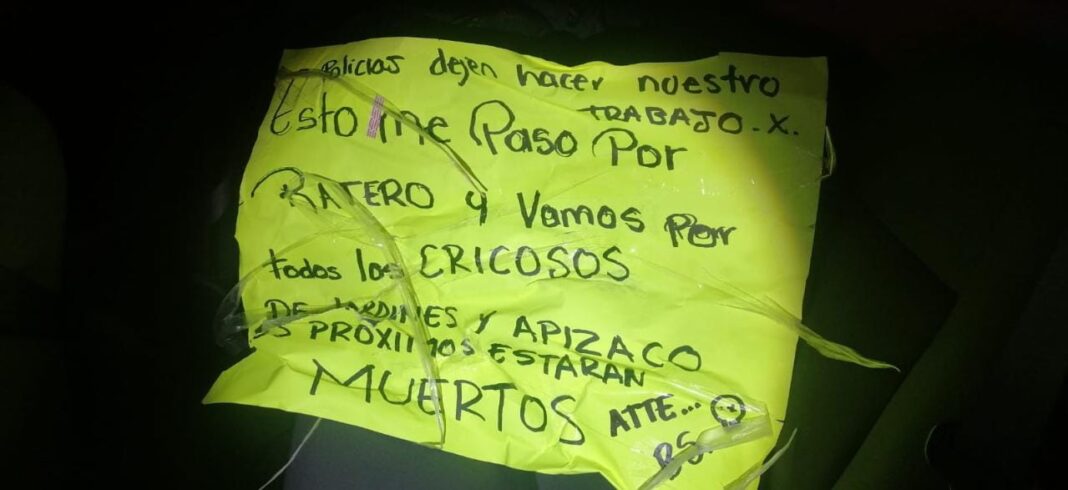 Policias dejen hacer nuestro
TRABAJO.X.
Esto me Paso Por
RATERO y Vamos Por
todos los CRICOSOS
DE JARDINES Y APIZACO
LOS PRÓXIMOS ESTARAN
MUERTOS
ATTE...